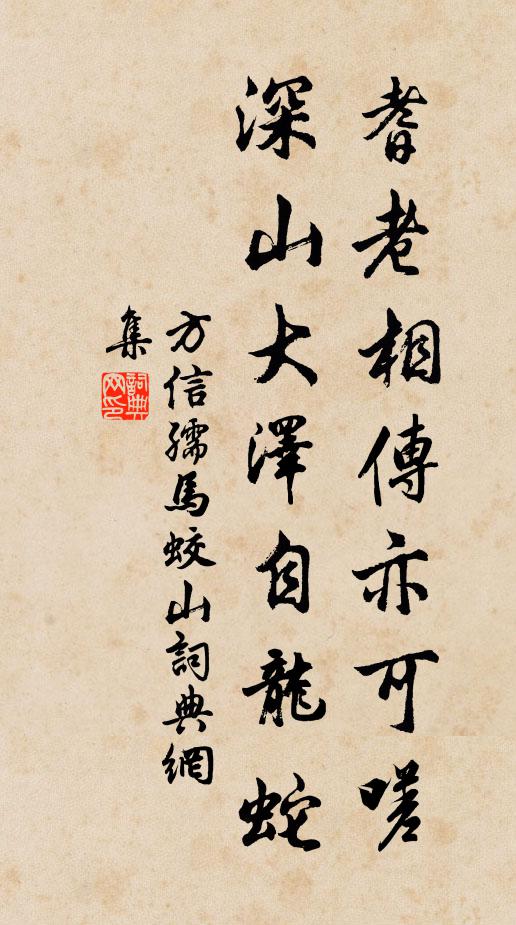 耆老相傳亦可嗟
深山大澤自龍蛇
方信孺馬蛟山詞典網
集
詞典
网印